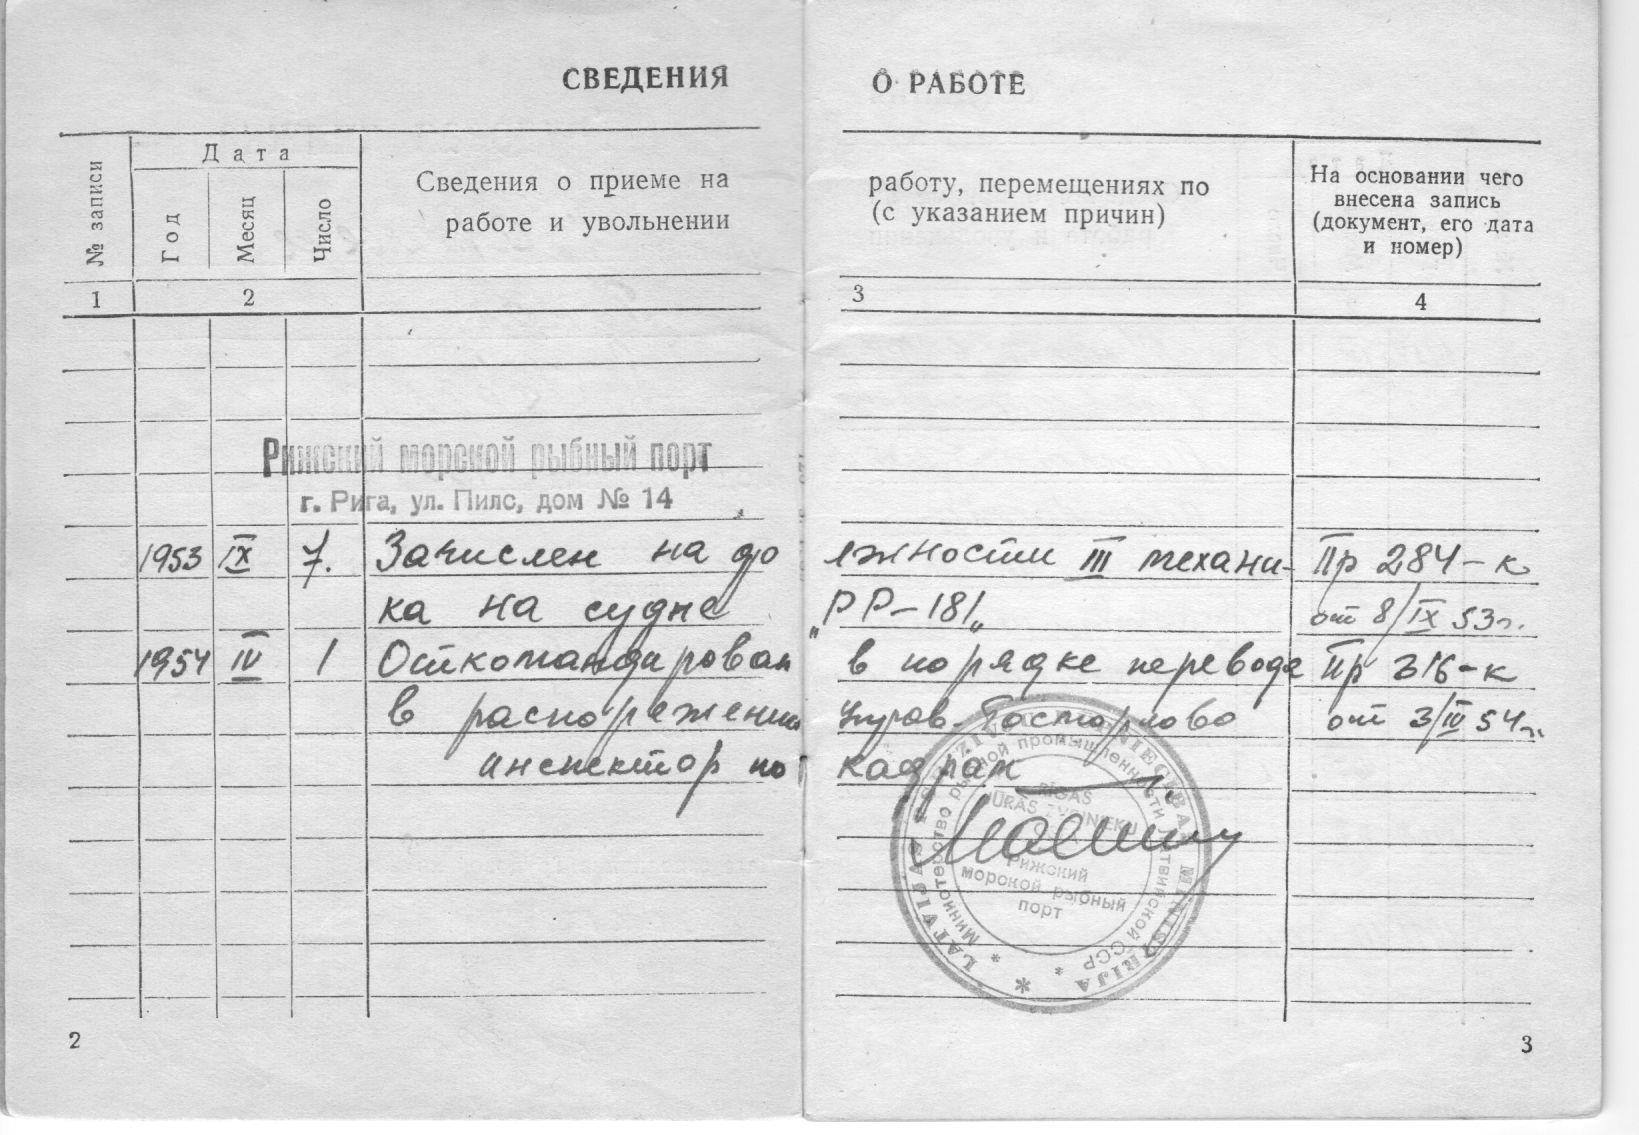 СВЕДЕНИЯ О РАБОТЕ
№ записи
Дата
Год
Месяц
Число
Сведения о приеме на работу, перемещениях по
работе и увольнении (с указанием причин)
На основании чего
внесена запись
(документ, его дата
и номер)
1 2 3 4
Рижский морской рыбный порт
г. Рига, ул. Пилс, дом № 14
1953 IX 7. Зачислен на до лжности III механи- Пр 284-к
ка на судне "РР-181" от 8/IX 53г.
1954 IV 1 Откомандирован в порядке перевода Пр 316-к
в распоряжении Управ. от 3/IV 54г.
инспектор по кадрам
LATVIJAS PSR ZIVJU RŪPNIECĪBAS MINISTRIJA
Министерство рыбной промышленности Латвийской ССР
RĪGAS
JŪRAS ZVEJNIEKU
Рижский
морской рыбный
порт
2
3